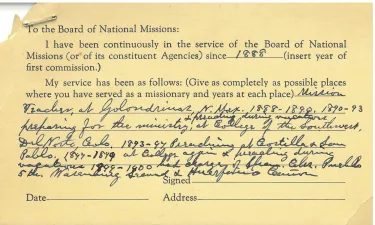 To the Board of National Missions:
I have been continuously in the service of the Board of National
Missions (or of its constituent Agencies) since 1888 (insert year of
first commission.)
My service has been as follows: (Give as completely as possible places
where you have served as a missionary and years at each place) Mission
Teacher, at Golondrinas, N. Mex. 1888-1890. 1890-93
& preaching during vacations
preparing for the ministry, at College of the Southwest,
Del Norte, Colo. 1893-97 Preaching at Costilla & San
Pablo, 1897-1899 at College again & preaching during
vacations 1899-1900 had charge of Span. Chs. Pueblo
5th, Walsenburg & Huerfano Cannon
Signed
Date Address